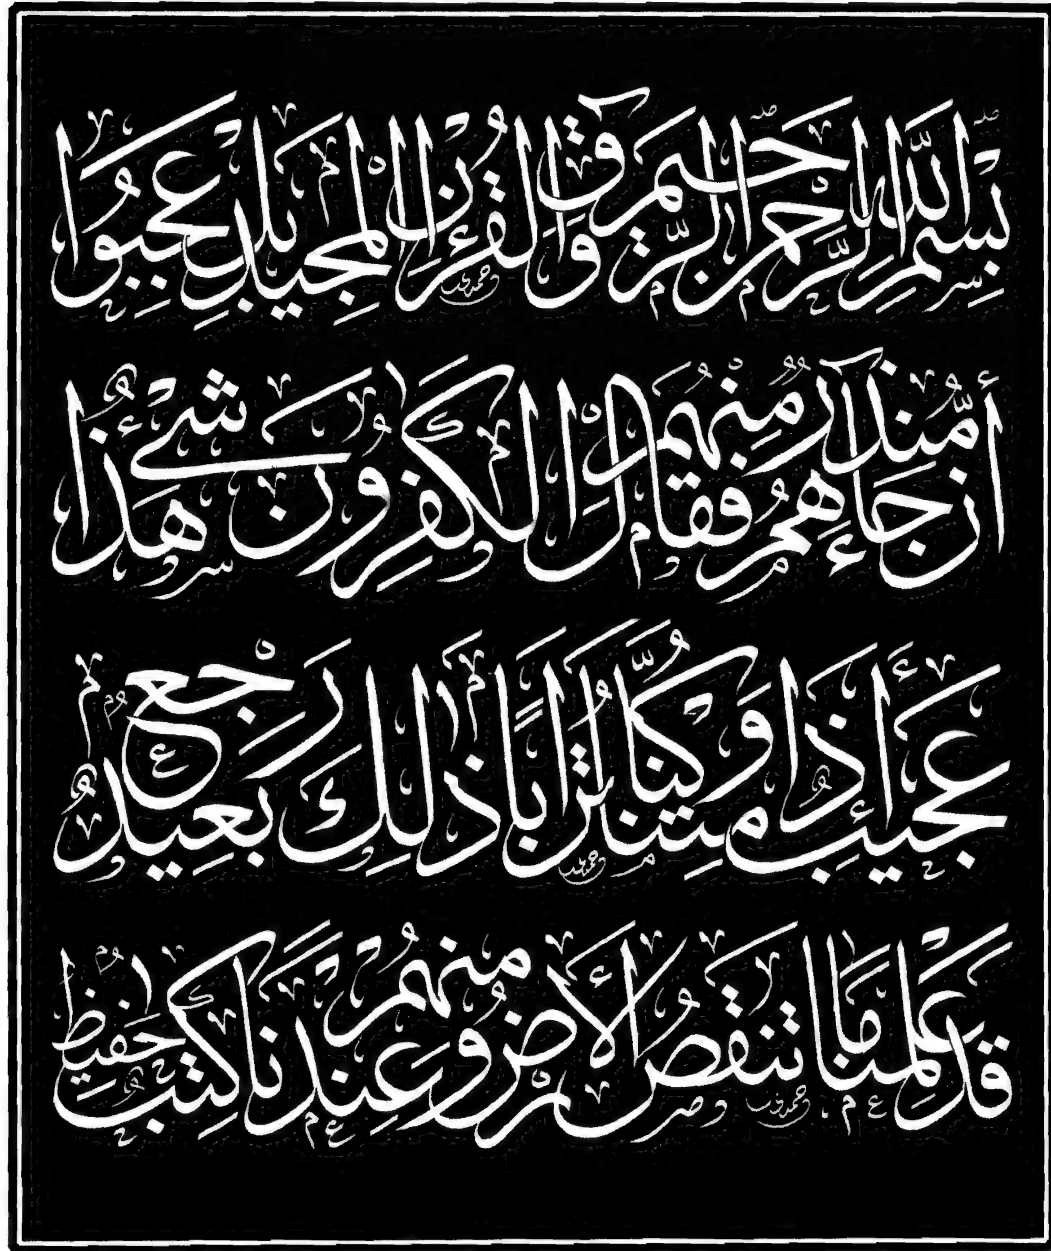 بِسْمِ اللَّهِ الرَّحْمٰنِ الرَّحِيمِ ق وَالْقُرْءٰنِ الْمَجِيدِ بَلْ عَجِبُوا
أَنْ جَاءَهُمْ مُنْذِرٌ مِنْهُمْ فَقَالَ الْكٰفِرُونَ هٰذَا شَيْءٌ
عَجِيبٌ أَئِذَا مِتْنَا وَكُنَّا تُرَابًا ذٰلِكَ رَجْعٌ بَعِيدٌ
قَدْ عَلِمْنَا مَا تَنْقُصُ الْأَرْضُ مِنْهُمْ وَعِنْدَنَا كِتٰبٌ حَفِيظٌ